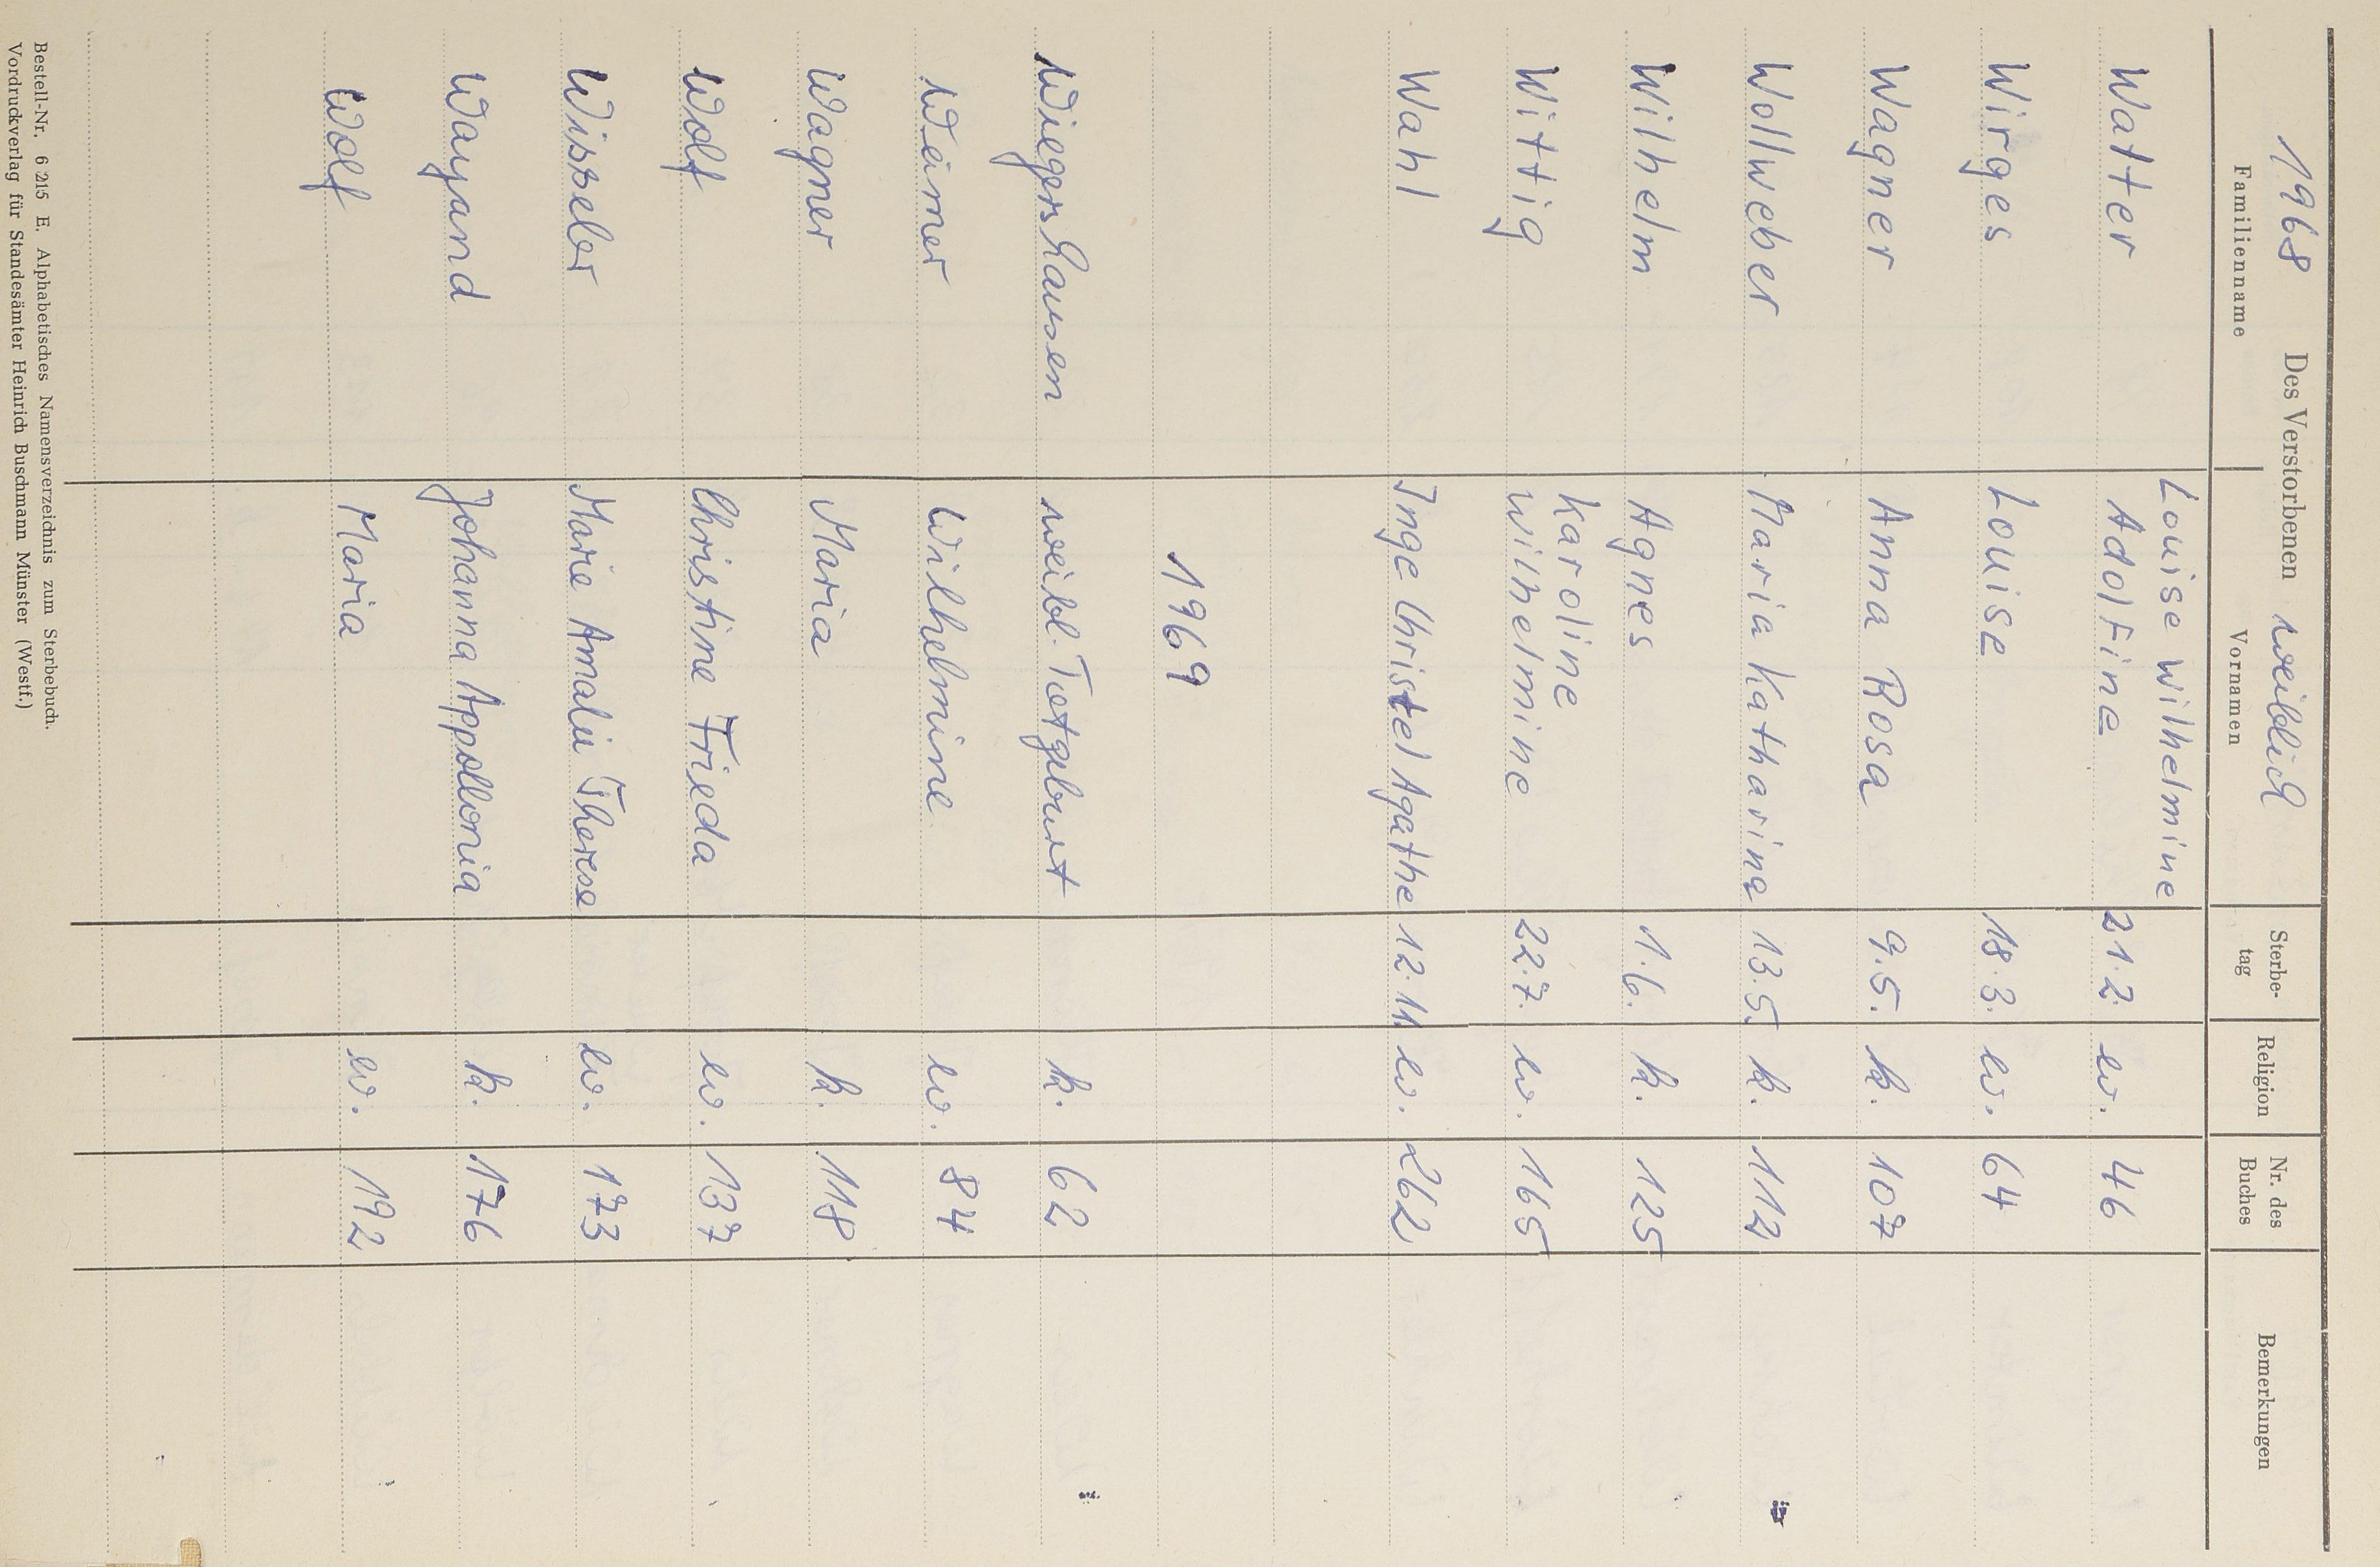 1968 Des Verstorbenen weiblich
Familienname Vornamen Sterbe- tag Religion Nr. des Buches Bemerkungen
Louise Wilhelmine
Watter Adolfine 21.2. ev. 46
Wirges Louise 18.3. ev. 64
Wagner Anna Rosa 9.5. k. 107
Wollweber Maria Katharina 13.5. k. 112
Wilhelm Agnes 1.6. k. 125
Karoline
Wittig Wilhelmine 22.7. ev. 165
Wahl Inge Christel Agathe 12.11. ev. 262
1969
Wiegershausen weibl. Totgeburt k. 62
Weimer Wilhelmine ev. 84
Wagner Maria k. 118
Wolf Christine Frieda ev. 137
Wisseler Marie Amalie Therese ev. 173
Wayand Johanna Appollonia k. 176
Wolf Maria ev. 192
Bestell-Nr. 6 215 E. Alphabetisches Namensverzeichnis zum Sterbebuch.
Vordruckverlag für Standesämter Heinrich Buschmann Münster (Westf.)